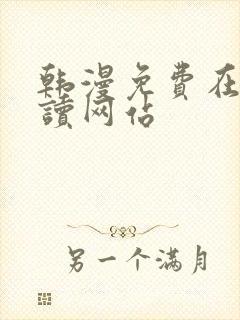 韩漫免费在
讀网站
另一个满月